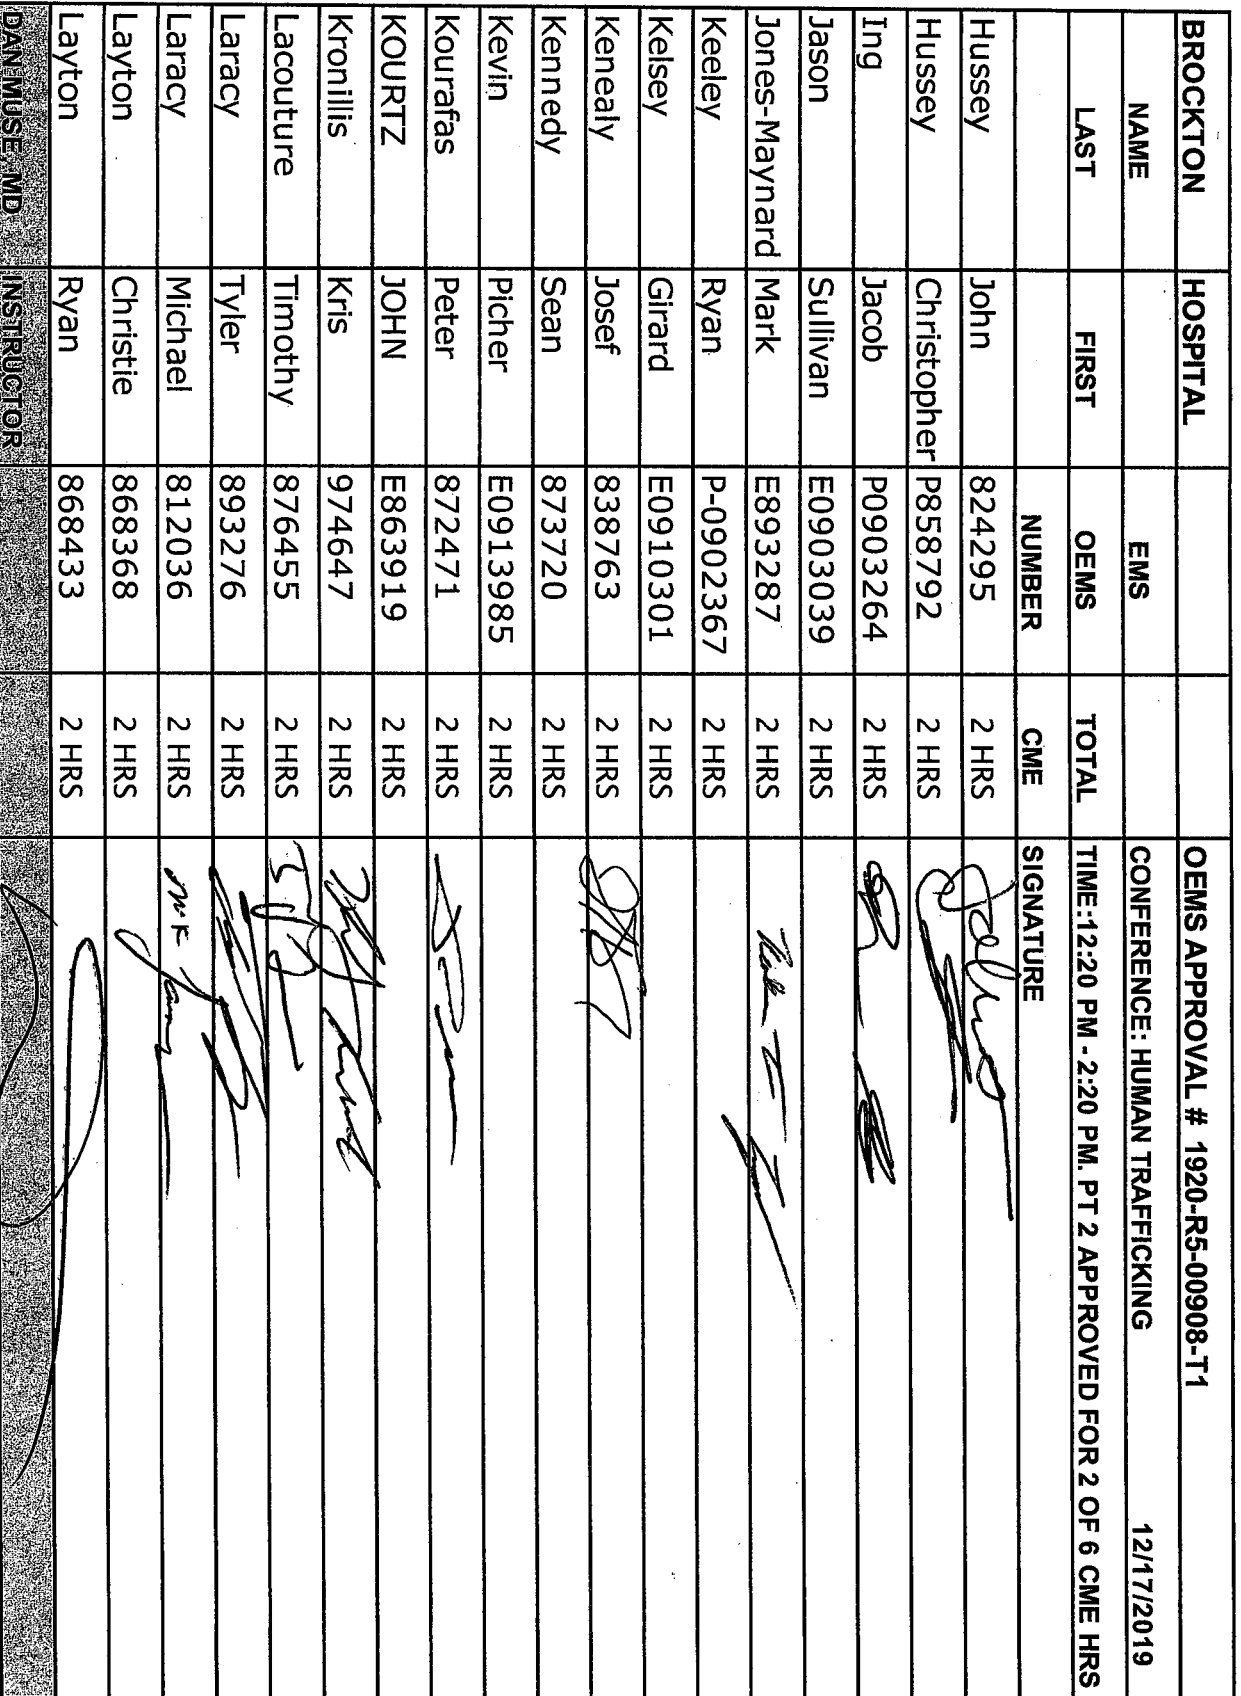 BROCKTON HOSPITAL OEMS APPROVAL # 1920-R5-00908-T1
NAME EMS CONFERENCE: HUMAN TRAFFICKING 12/17/2019
LAST FIRST OEMS TOTAL TIME:12:20 PM - 2:20 PM. PT 2 APPROVED FOR 2 OF 6 CME HRS
NUMBER CME SIGNATURE
Hussey John 824295 2 HRS
Hussey Christopher P858792 2 HRS
Ing Jacob P0903264 2 HRS
Jason Sullivan E0903039 2 HRS
Jones-Maynard Mark E893287 2 HRS
Keeley Ryan P-0902367 2 HRS
Kelsey Girard E0910301 2 HRS
Kenealy Josef 838763 2 HRS
Kennedy Sean 873720 2 HRS
Kevin Picher E0913985 2 HRS
Kourafas Peter 872471 2 HRS
KOURTZ JOHN E863919 2 HRS
Kronillis Kris 974647 2 HRS
Lacouture Timothy 876455 2 HRS
Laracy Tyler 893276 2 HRS
Laracy Michael 812036 2 HRS
Layton Christie 868368 2 HRS
Layton Ryan 868433 2 HRS
DAN MUSE, MD INSTRUCTOR